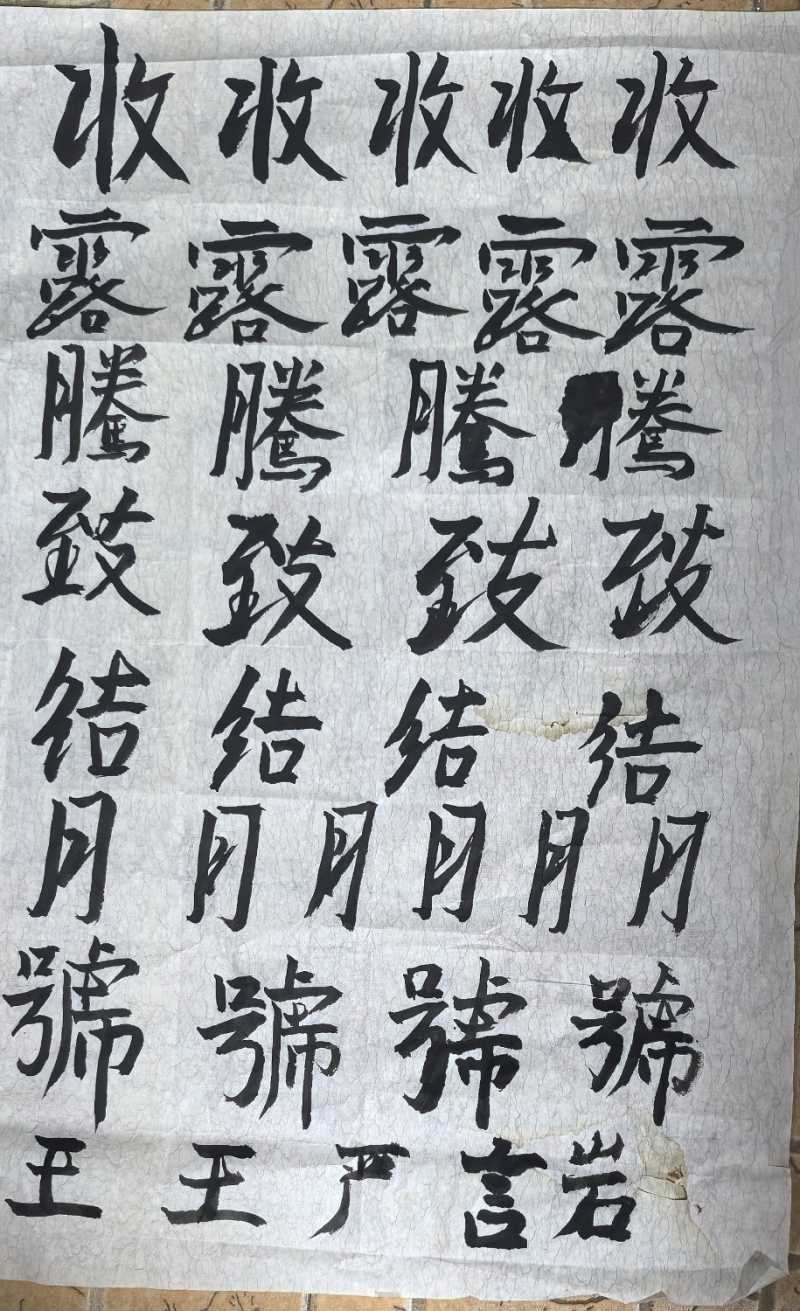 收收收收收
露露露露露
騰騰騰騰
致致致致
结结结结
月月月月月月
號號號號
王王严言岩